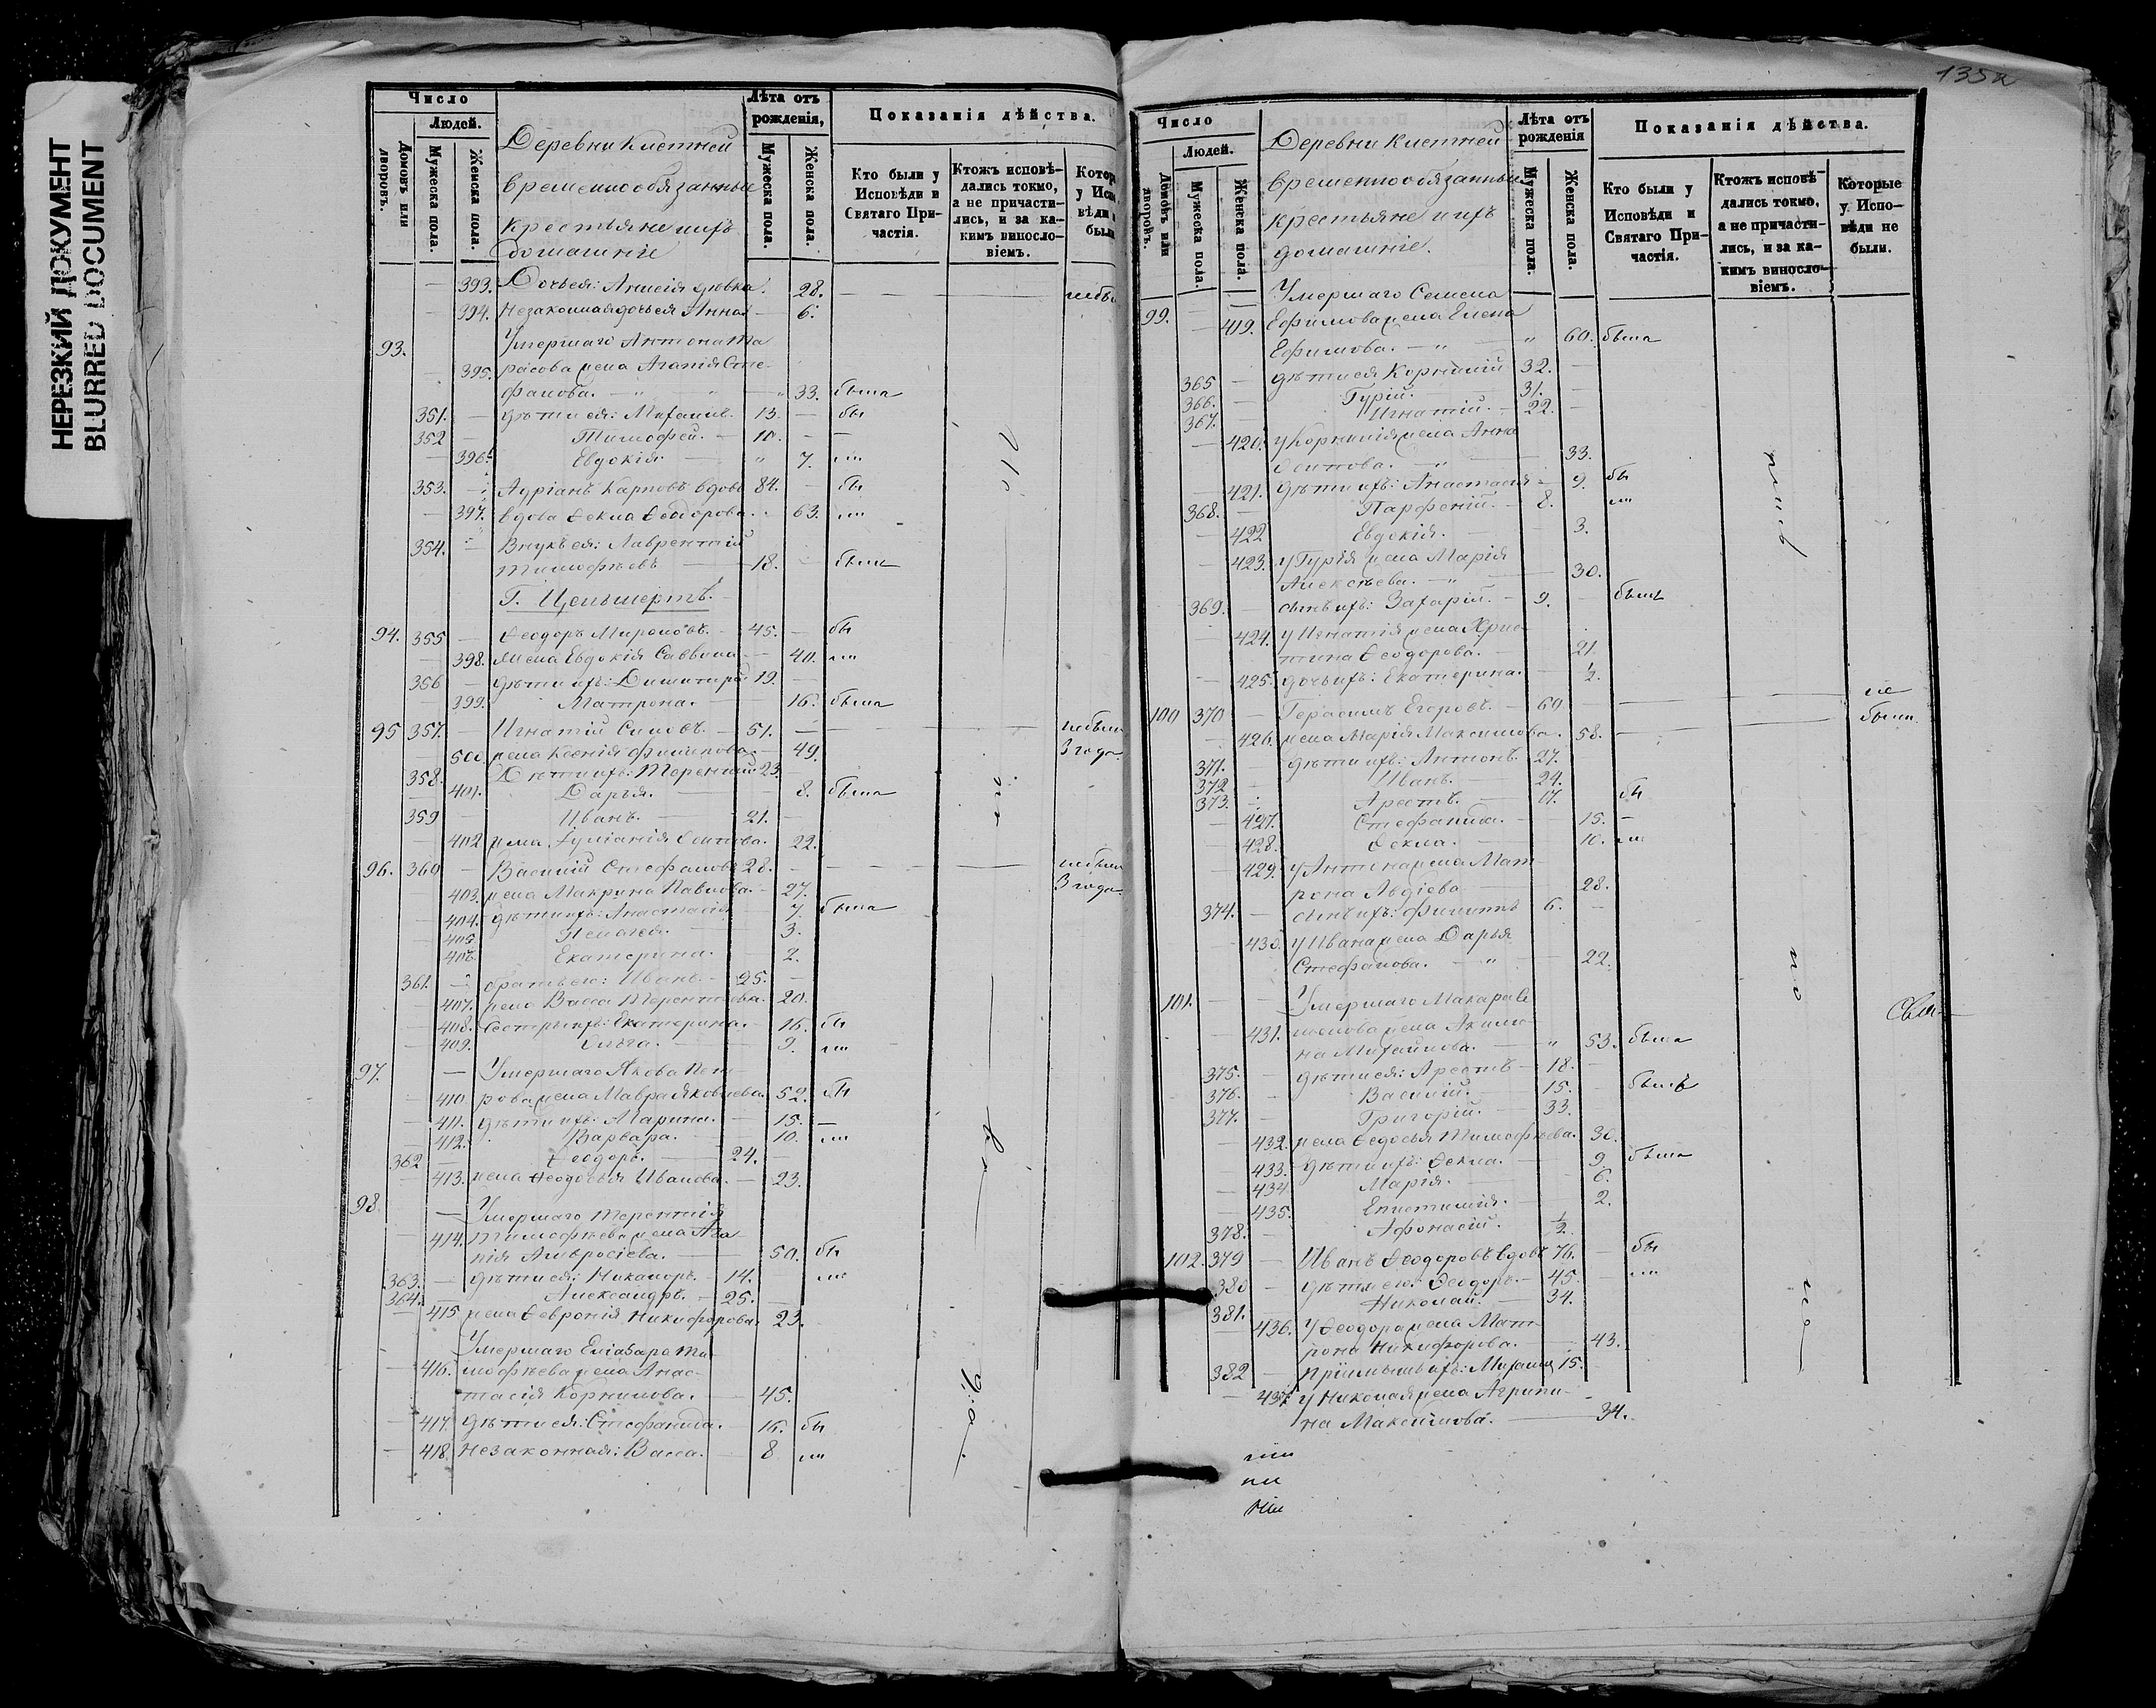 НЕРЕЗКИЙ ДОКУМЕНТ
BLURRED DOCUMENT
Число
Людей.
Домовъ или дворовъ.
Мужеска пола.
Женска пола.
Деревни Клетней
временнообязанные
крестьяне и ихъ
домашніе
Лѣта отъ рожденія,
Мужеска пола.
Женска пола.
Показанія дѣйства.
Кто были у Исповѣди и Святаго Причастія.
Ктожъ исповѣдались токмо, а не причастились, и за какимъ винословіемъ.
393. Дочь ея: Анисія дѣвка. 28.
394. Незаконная дочь ея Анна 6.
93. Умершаго Антона Та
395. расова жена Агапія Сте-
фанова. 33. была
351. дѣти ея: Михаилъ. 13. бы
352 Тимофей. 10. —
396. Евдокія. 7. ли
353. Адріанъ Карповъ вдовъ 84. бы
397. вдова Ѳекла Ѳеодорова. 63. ли
354. Внукъ ея: Лаврентій
Тимофѣевъ 18. былъ
Г.
94. 355 Ѳеодоръ Мироновъ. 45. бы
398. жена Евдокія Саввина 40. ли
356 дѣти ихъ: Димитрій 19. —
399. Матрона. 16. была
95 357. Игнатій 51. небыли
500 жена Ксенія Филипова 49. 3 года
358. Дѣти ихъ: Терентій 23.
401. Дарья. 8. была
359 Иванъ. 21. —
402 жена Іуліанія Осипова. 22.
96. 360 Василій Стефановъ 28. небыли
403. жена Макрина Павлова. 27. 3 года
404. дѣти ихъ: Анастасія 7. была
405. Пелагея. 3.
406. Екатерина. 2.
361. братъ ею: Иванъ. 25. —
407. жена Васса Терентьева. 20.
408. Сестры ихъ: Екатерина. 16. бы
409. Ольга. 9. ли
97. Умершаго Якова Пет-
410. рова жена Мавра Яковлева. 52. бы
411. дѣти ихъ: Марина. 15. —
412. Варвара. 10. ли
362 Ѳеодоръ. 24. —
413. жена Ѳеодосья Иванова. 23.
98. Умершаго Терентія
414. Тимофѣева жена Ага
пія Амвросіева. 50. бы
363. дѣти ея: Никаноръ. 14. ли
364. Александръ. 25. —
415 жена Ѳевронія Никифорова. 23.
Умершаго Еліазара Ти
416. мофѣева жена Анас-
тасія Корнилова. 45.
417. дѣти ея: Стефанида. 16. бы
418. незаконная: Васса. 8 ли
135а
Число
Людей.
Домовъ или дворовъ.
Мужеска пола.
Женска пола.
Деревни Клетней
временнообязанные
крестьяне и ихъ
домашніе.
Лѣта отъ рожденія
Мужеска пола.
Женска пола.
Показанія дѣйства.
Кто были у Исповѣди и Святаго Причастія.
Ктожъ исповѣдались токмо, а не причастились, и за какимъ винословіемъ.
Которые у Исповѣди не были.
99. Умершаго Семена
419. Ефимова жена Елена
Ефимова. 60. была
365 дѣти ея Корнилій 32. —
366. Гурій. 31. —
367. Игнатій. 22. —
420. у Корнилія жена Анна
Осипова. 33.
421. дѣти ихъ: Анастасія 9. бы
368. Парфеній. 8. ли
422 Евдокія. 3.
423. у Гурія жена Марія
Алексѣева. 30.
369. сынъ ихъ: Захарій. 9. былъ
424. у Игнатія жена Хрис-
тина Ѳеодорова. 21.
425. дочь ихъ: Екатерина. ½.
100 370 Герасимъ Егоровъ. 60 не
426. жена Марія Максимова. 58. были.
371. дѣти ихъ: Антонъ 27.
372 Иванъ. 24.
373. Арестъ. 17. бы
427. Стефанида. 15. —
428. Ѳекла. 10. ли
429. у Антона жена Мат-
рона Авдіева 28.
374. сынъ ихъ: Филиппъ 6. —
430. у Ивана жена Дарья
Стефанова. 22.
101. Умершаго Макара Се
431. менова жена Акили-
на Михайлова. 53. была
375. дѣти ея: Арестъ 18. —
376. Василій. 15. былъ
377. Григорій. 33.
432. жена Ѳедосья Тимофѣева. 30.
433. дѣти ихъ: Ѳекла. 9. была
434. Марія. 6.
435. Епистимія. 2.
378. Афонасій. ½.
102. 379 Иванъ Ѳеодоровъ вдовъ 76. бы
380 дѣти его: Ѳеодоръ. 45. ли
381. Николай. 34.
436. у Ѳеодора жена Мат
рона Никифорова. 43.
382 пріемышъ ихъ: Михаилъ 15.
437. у Николая жена Агрипи-
на Максимова. 34.